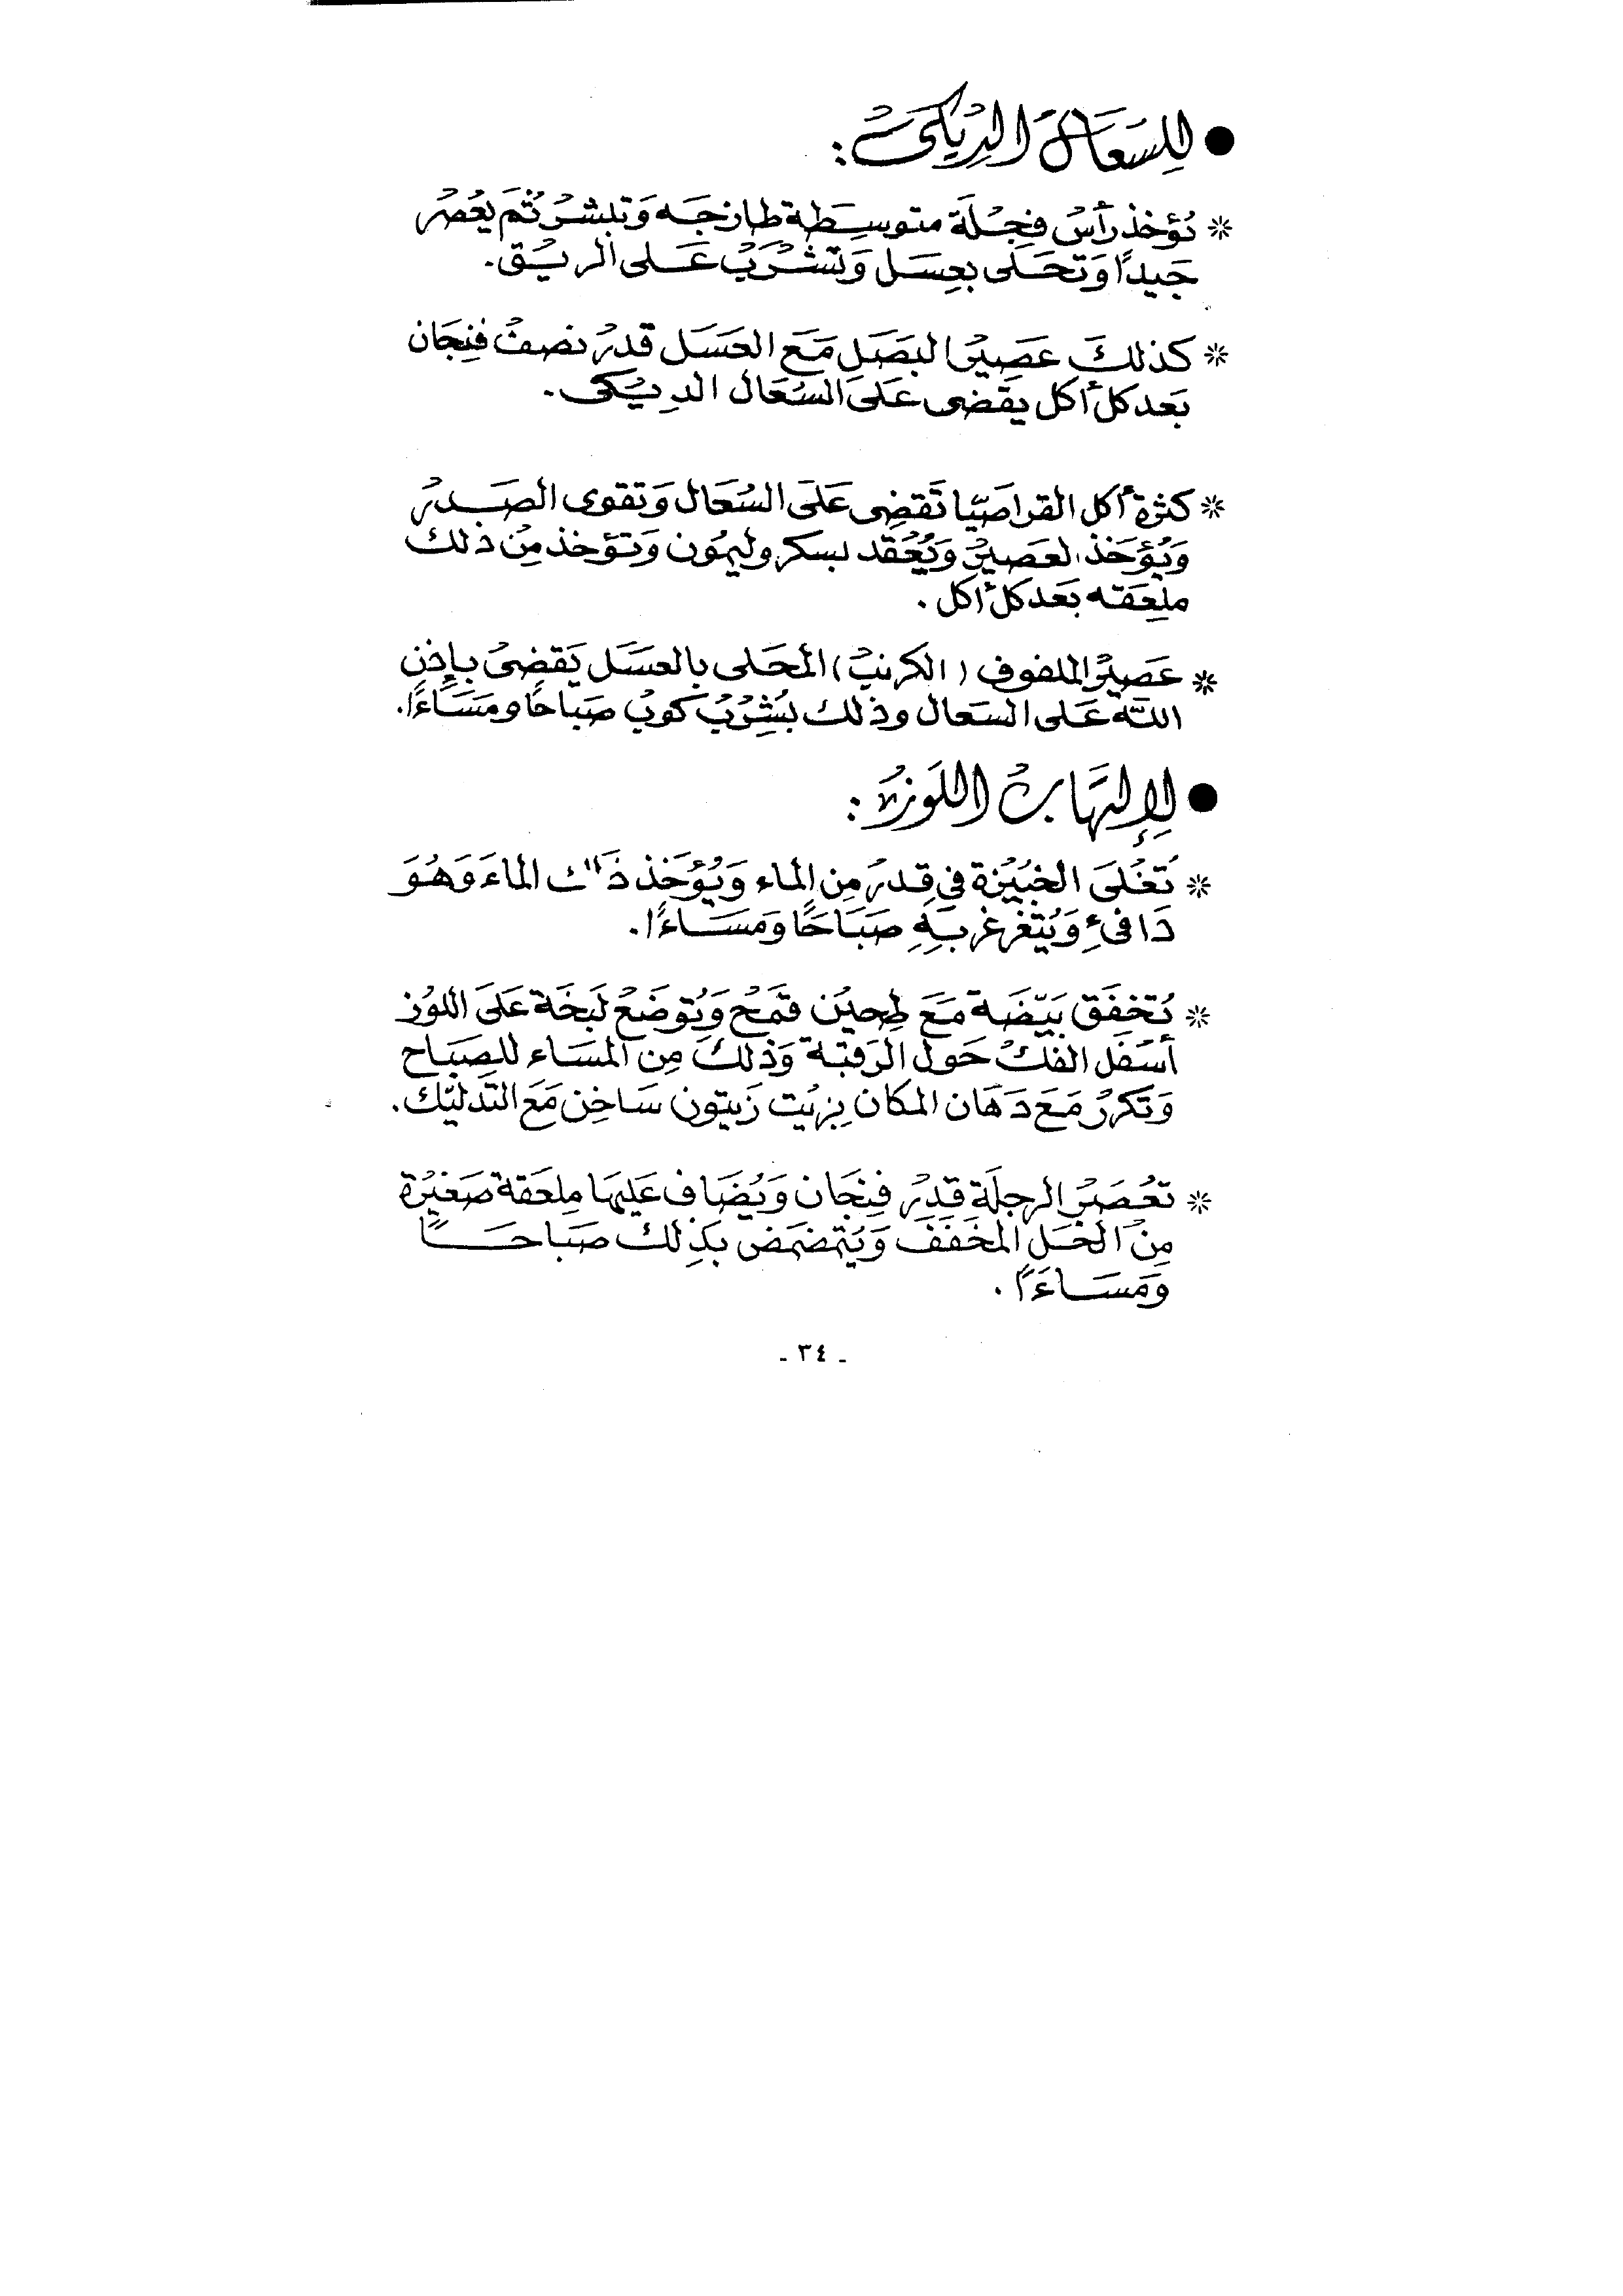 ● للسعال الديكى :
* تؤخذ رأس فجلة متوسطة طازجه وتبشر ثم يعصر
جيداً وتحلى بعسل وتشرب على الريق .
* كذلك عصير البصل مع العسل قدر نصف فنجان
بعد كل أكل يقضى على السعال الديكى .
* كثرة أكل القراصيا تقضى على السعال وتقوى الصدر
ويؤخذ العصير ويعقد بسكر وليمون وتؤخذ من ذلك
ملعقه بعد كل أكل .
* عصير الملفوف ( الكرنب ) المحلى بالعسل يقضى بإذن
الله على السعال وذلك بشرب كوب صباحًا ومساءًا .
● لإلتهاب اللوز :
* تغلى الخبيزة فى قدر من الماء ويؤخذ ذلك الماء وهو
دافئ ويتغرغر به صباحًا ومساءًا .
* تخفق بيضة مع طحين قمح وتوضع لبخة على اللوز
أسفل الفك حول الرقبة وذلك من المساء للصباح
وتكرر مع دهان المكان بزيت زيتون ساخن مع التدليك .
* تعصر الرجلة قدر فنجان ويضاف عليها ملعقة صغيرة
من الخل المخفف ويتمضمض بذلك صباحًا
ومساءًا .
- ٣٤ -